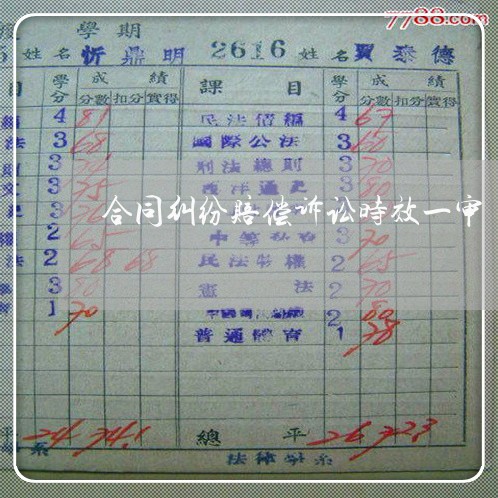 7788.com
學期
姓名 忻鼎明 2616 姓名 賈泰德
目 學分 成績 課目 學分 成績
分數 扣分 實得 分數 扣分 實得
4 81 民法債編 4 67
法 3 68 國際公法 3 60
3 刑法總則 3 70
文 3 75 西洋通史 3 80
合同纠纷赔偿诉讼時效一审
權 2 65 中等 3 70
法 2 68 68 民法物權 2 65
3 80 憲法 2 70
1 70 2 80
普通體育 1 78
平 24 74.1 總平 26 72.3
系 法律學系